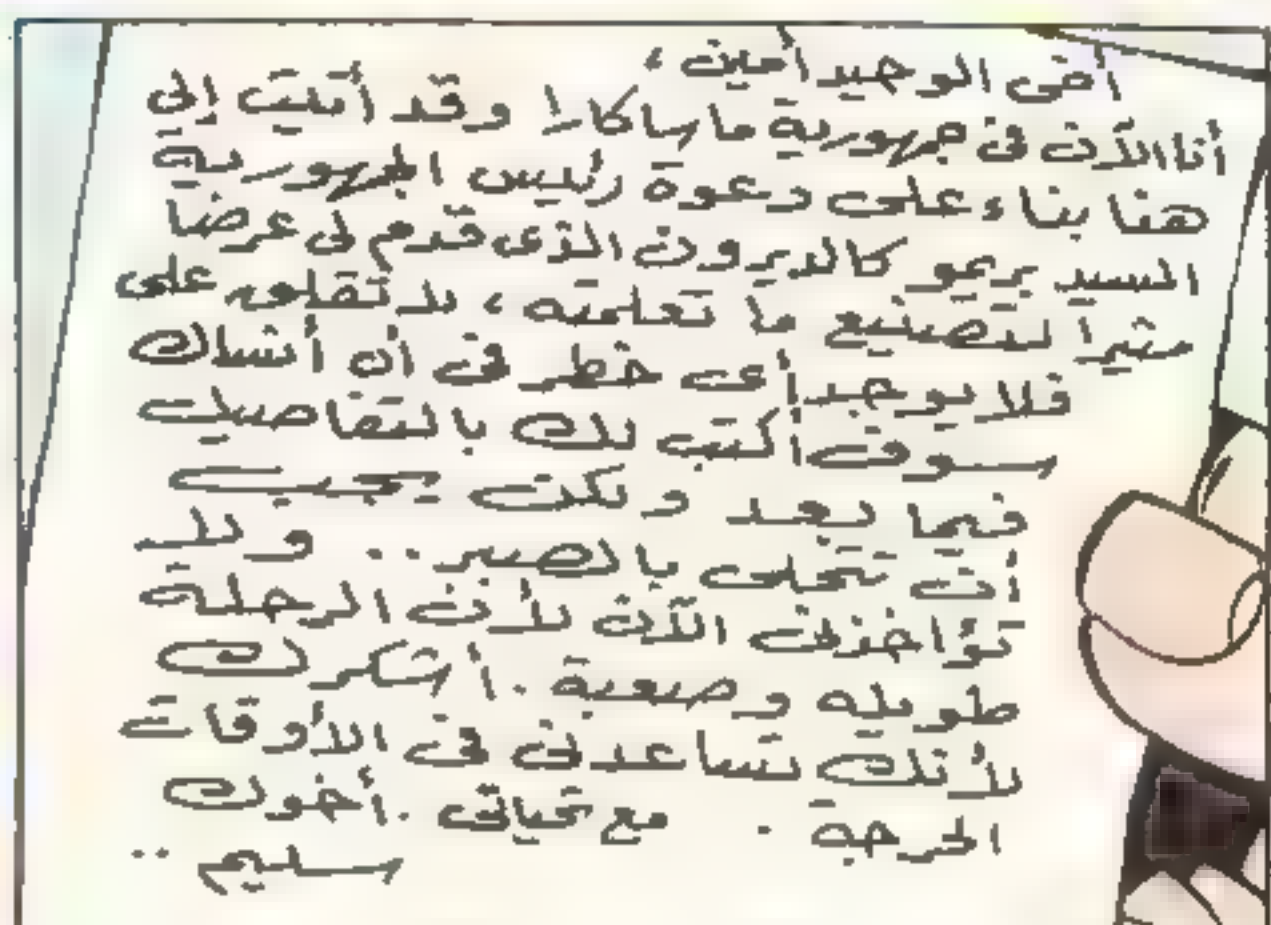 أخى الوحيد أمين ،
أنا الآن فى جمهورية ماساكارا وقد أتيت إلى
هنا بناء على دعوة رئيس الجمهورية
السيد بريمو كالديرون الذى قدم لى عرضا
مثيرا لتصنيع ما تعلمته ، لا تقلق على
فلا يوجد أى خطر فى أن أنساك
سوف أكتب لك بالتفاصيل
فيما بعد ولكن يجب
أن تتحلى بالصبر .. ولا
تؤاخذنى الآن لأن الرحلة
طويله وصعبة . أشكرك
لأنك تساعدنى فى الأوقات
الحرجة . مع تحياتى . أخوك
سليم ..